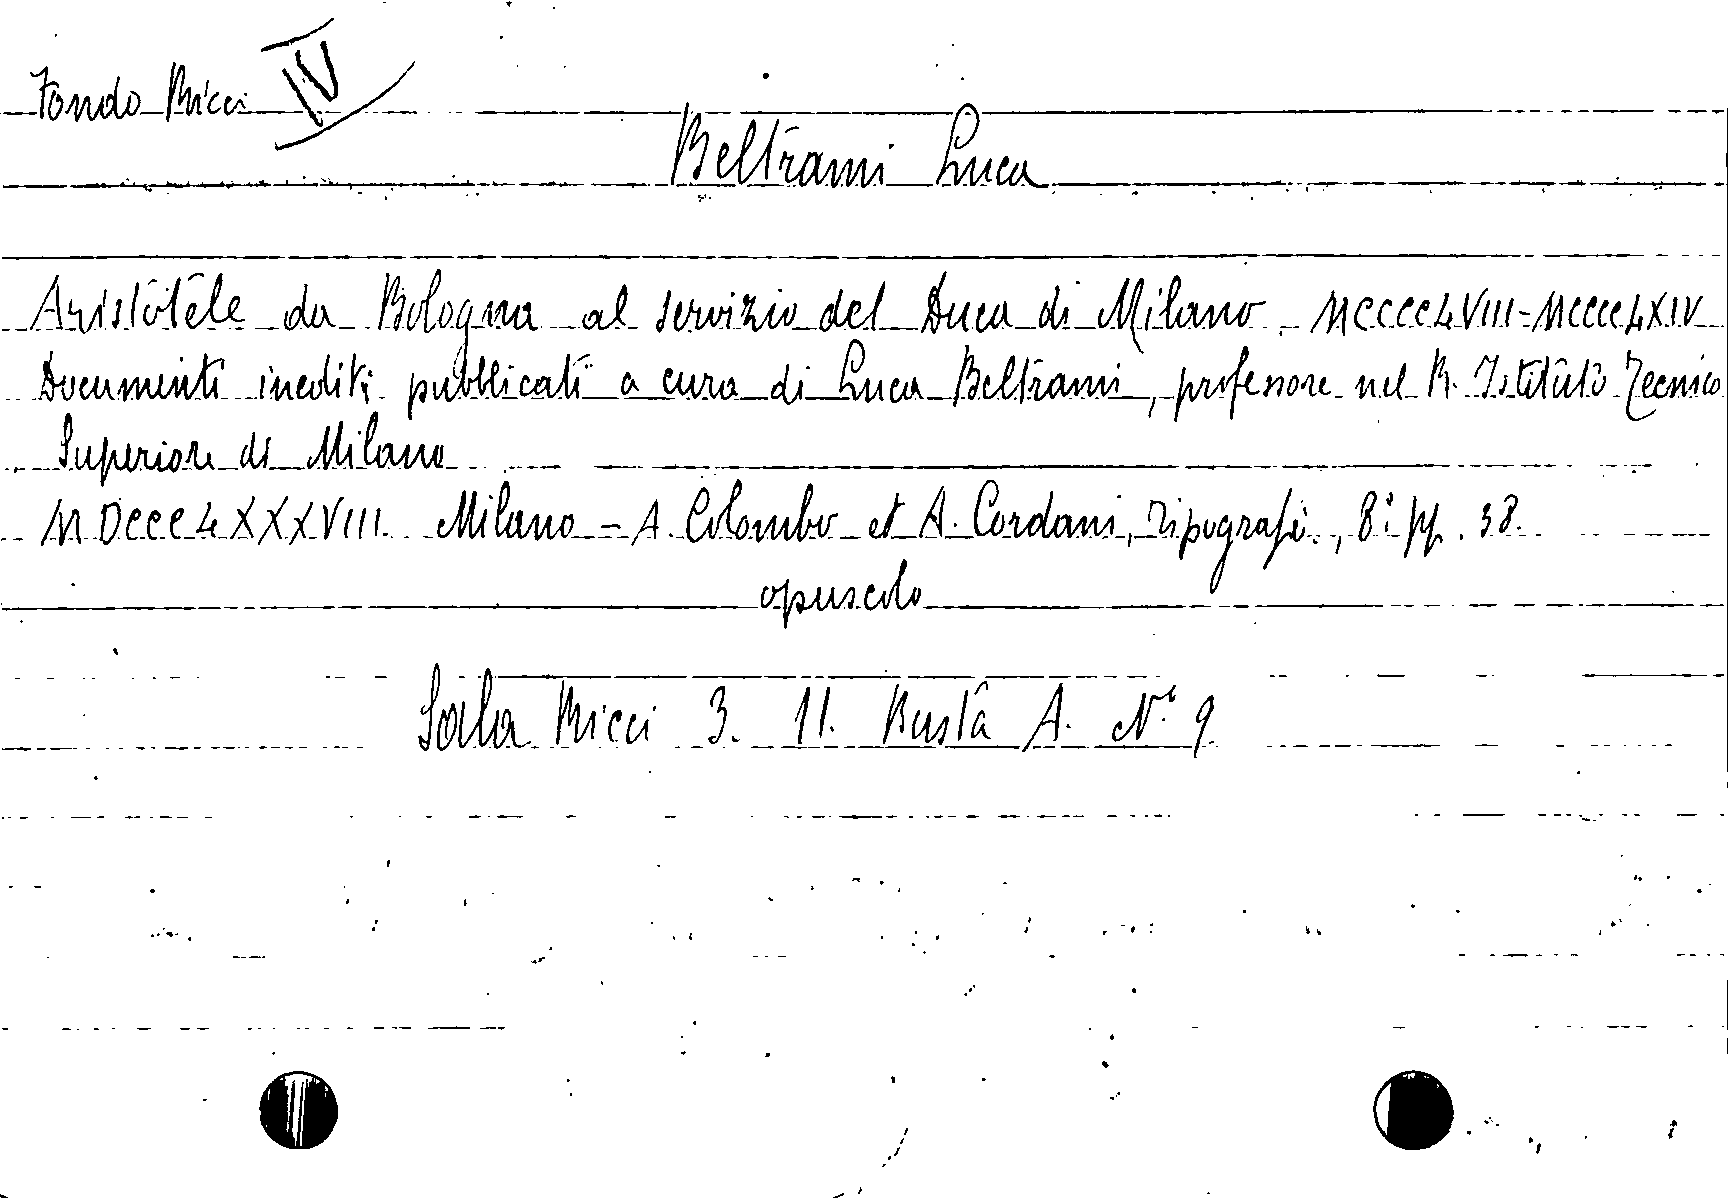 Fondo Ricci IV
Beltrami Luca
Aristotele da Bologna al servizio del Duca di Milano. MCCCCLVIII-MCCCCLXIV
Documenti inediti pubblicati a cura di Luca Beltrami, professore nel R. Istituto Tecnico
Superiore di Milano
MDCCCLXXXVIII. Milano - A. Colombo et A. Cordani, Tipografi., 8° pp. 38.
opuscolo
Sala Ricci 3. 11. Busta A. N° 9